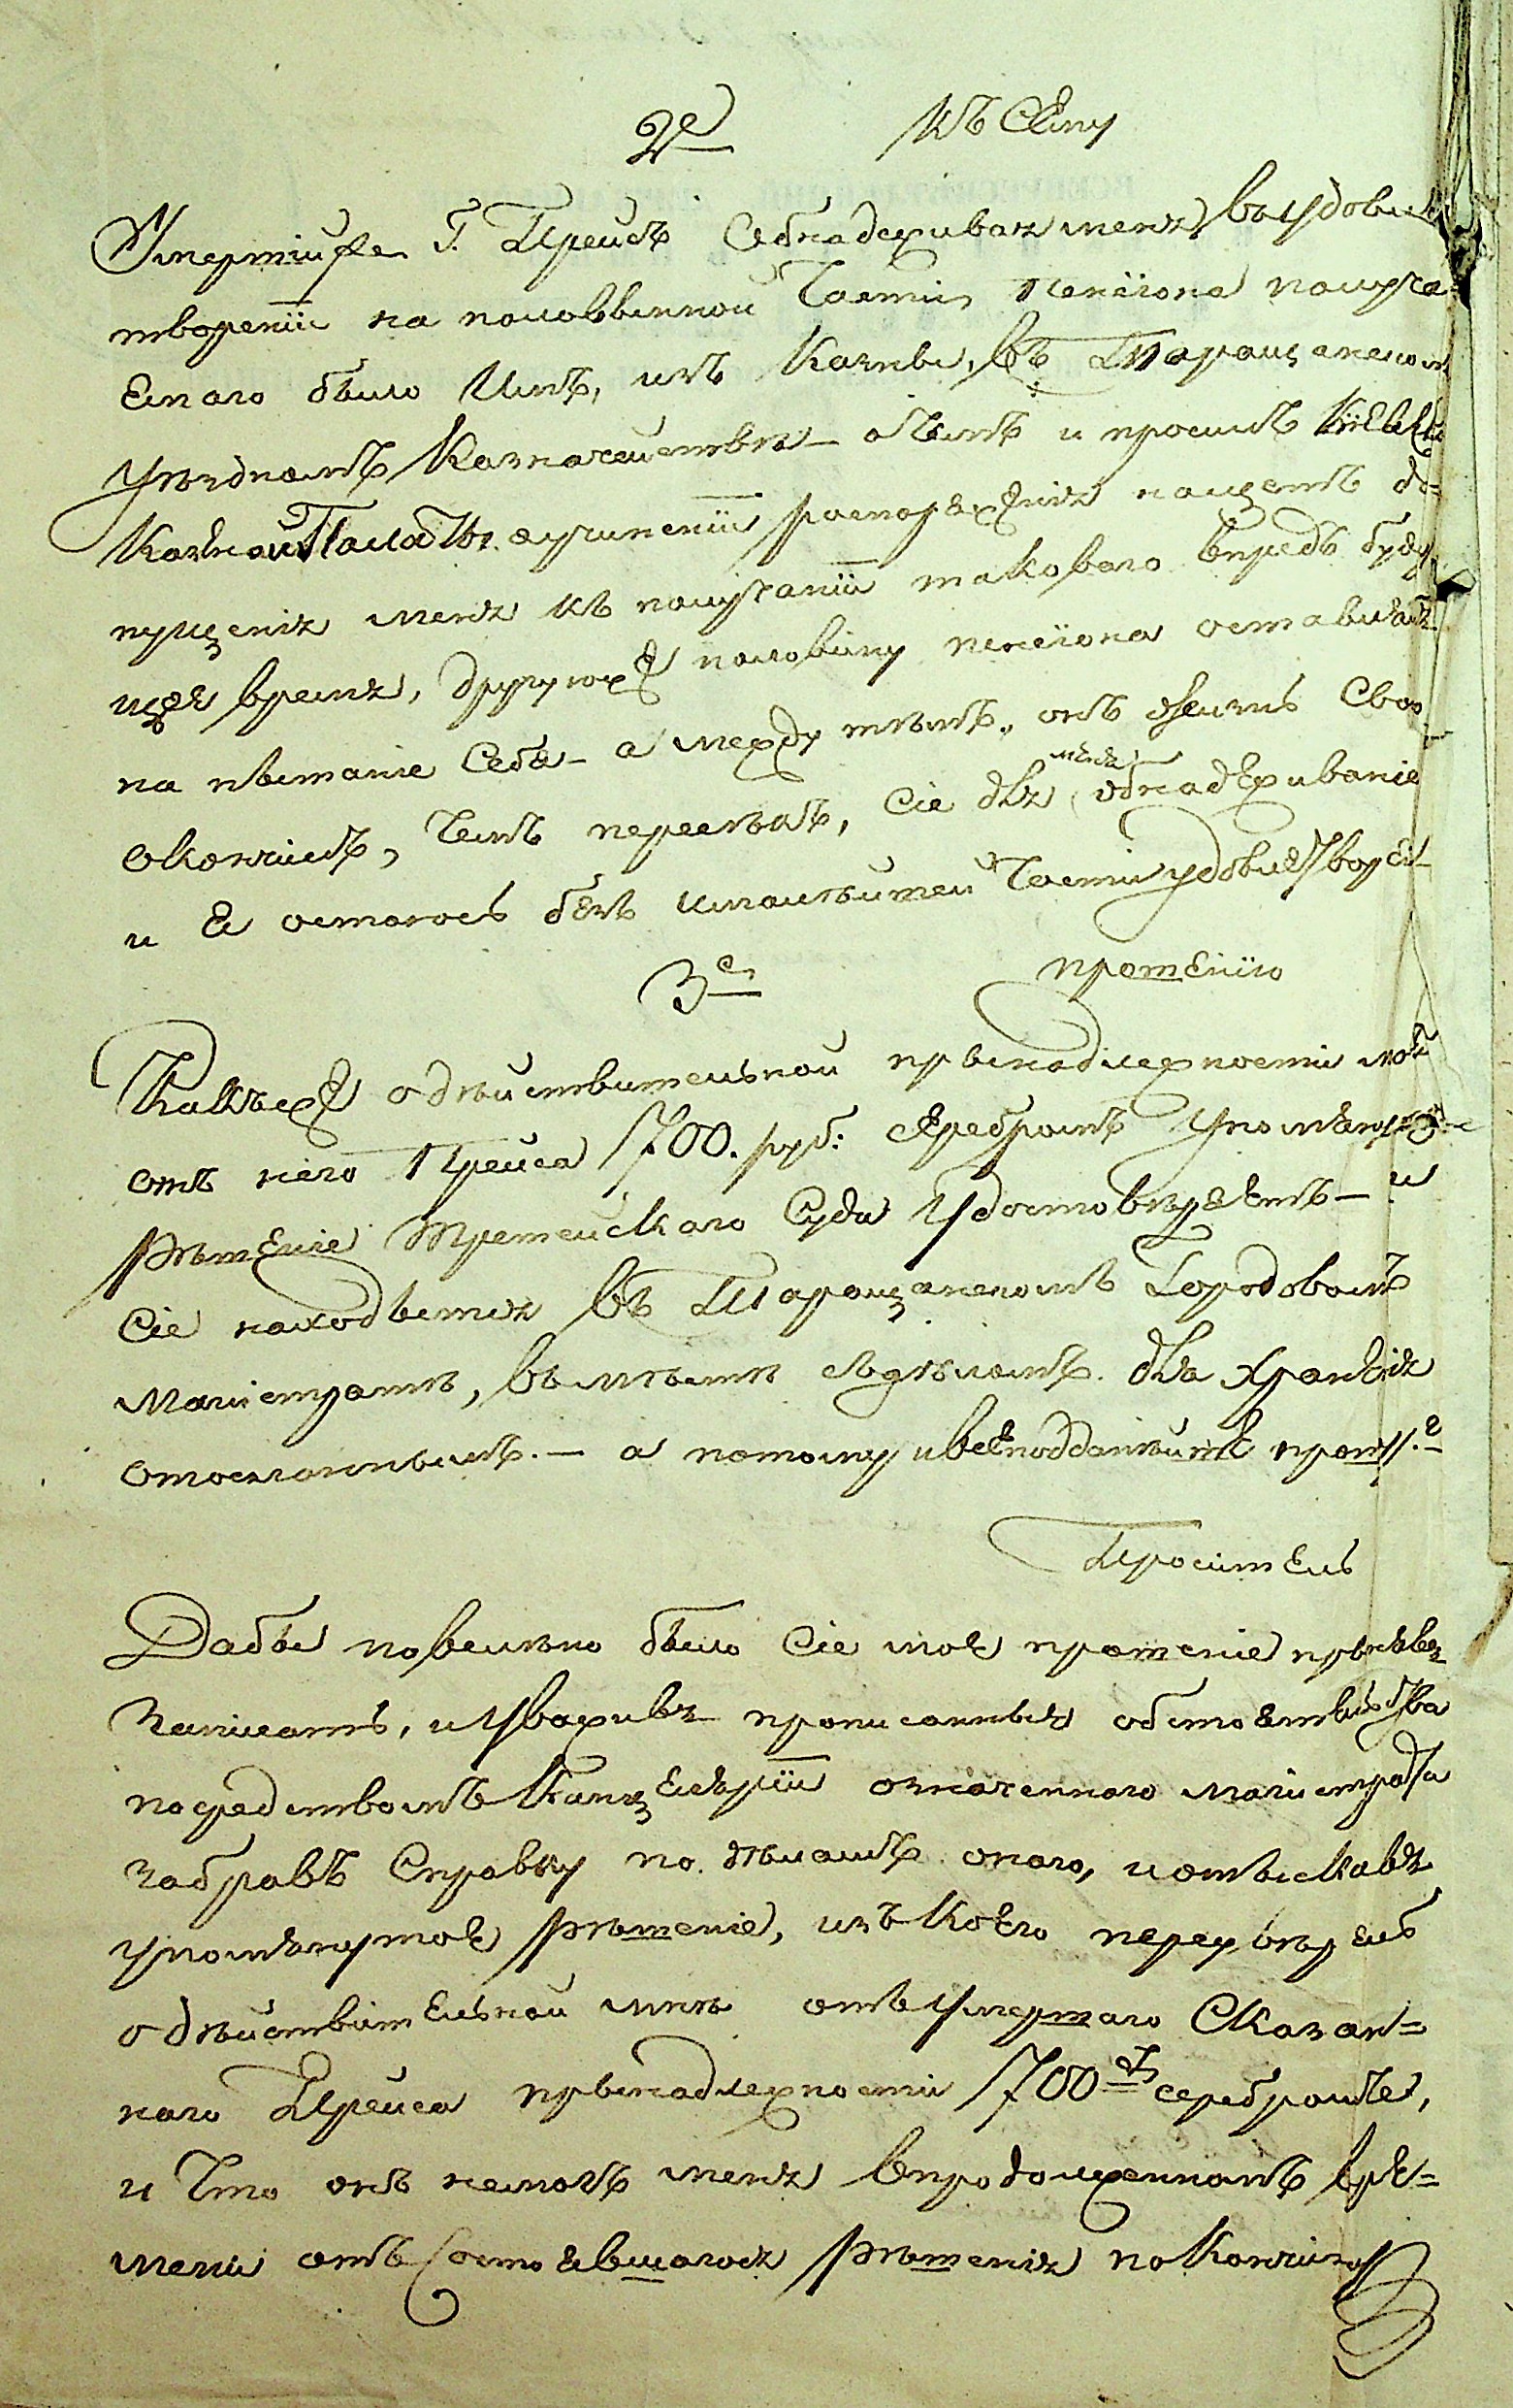 2е къ сему
Умершийже Г. Прейсъ Обнадеживая меня въ удовле
твореніи на половинной Части пенсіона получа=
емаго было Имъ, изъ Казны, въ Таращанском
уѣздномъ Казначействѣ – о чемъ и просилъ Кіевск
Казеной Палаты. о учиненіи распоряженія нащетъ до=
пущенія меня къ получаніи таковаго впредь буду
щее время, другуюже половину пенсіона оставилъ
на пытаніе Себѣ – а между тѣмъ, онъ жизнь Свою
окончилъ, Чемъ пересѣкъ, Сіе для меня обнадеживаніе
и Я остаюсь безъ малѣйшей Части удовлетворен
3е прошенію
Какъже о дѣйствительной прынадлежности мой
отъ него Прейса 700. руб: серебромъ упомянутое
рѣшеніе Третейскаго Суда удостовѣряетъ – и
Сіе находытся въ Таращанскомъ Городовомъ
Магистратѣ, вымѣстѣ съ дѣломъ. для храненія
отосланнымъ. – а потому и всеподданнѣйше прошу.
Проситель
Дабы повелѣно было Сіе мое прошеніе прынявъ
Записать, и Уваживъ прописанныя обстоятельства
посредствомъ Канцеляріи означеннаго магистрата
забравъ Справку по дѣламъ онаго, и отыскавъ
упомянутое рѣшеніе, изъ коего
о дѣйствительной мнѣ отъ Умершаго Сказан=
наго Прейса прынадлежности 700 серебромъ,
и Что онъ немогъ меня впродолженномъ вре=
мени отъ Состоявшагося рѣшенія